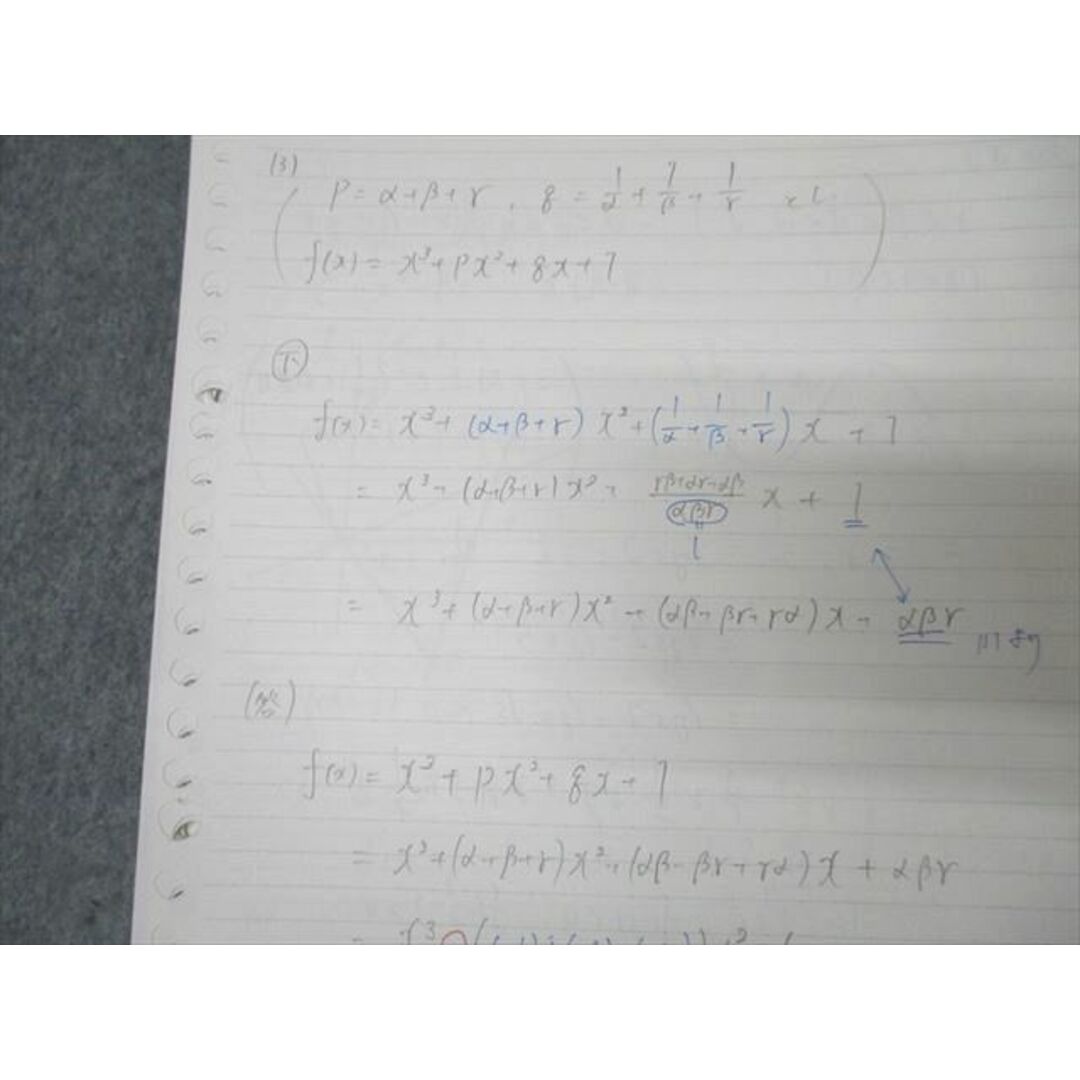 (3)
p = α+β+γ , q = 1/α + 1/β + 1/γ
f(x) = x³ + px² + qx + 1
下
f(x) = x³ + (α+β+γ) x² + (1/α + 1/β + 1/γ) x + 1
= x³ + (α+β+γ) x² + (γβ+αγ+αβ)/(αβγ) x + 1
1
= x³ + (α+β+γ)x² + (αβ+βγ+γα)x + αβγ
f(x) = x³ + px² + qx + 1
= x³ + (α+β+γ)x² + (αβ+βγ+γα)x + αβγ